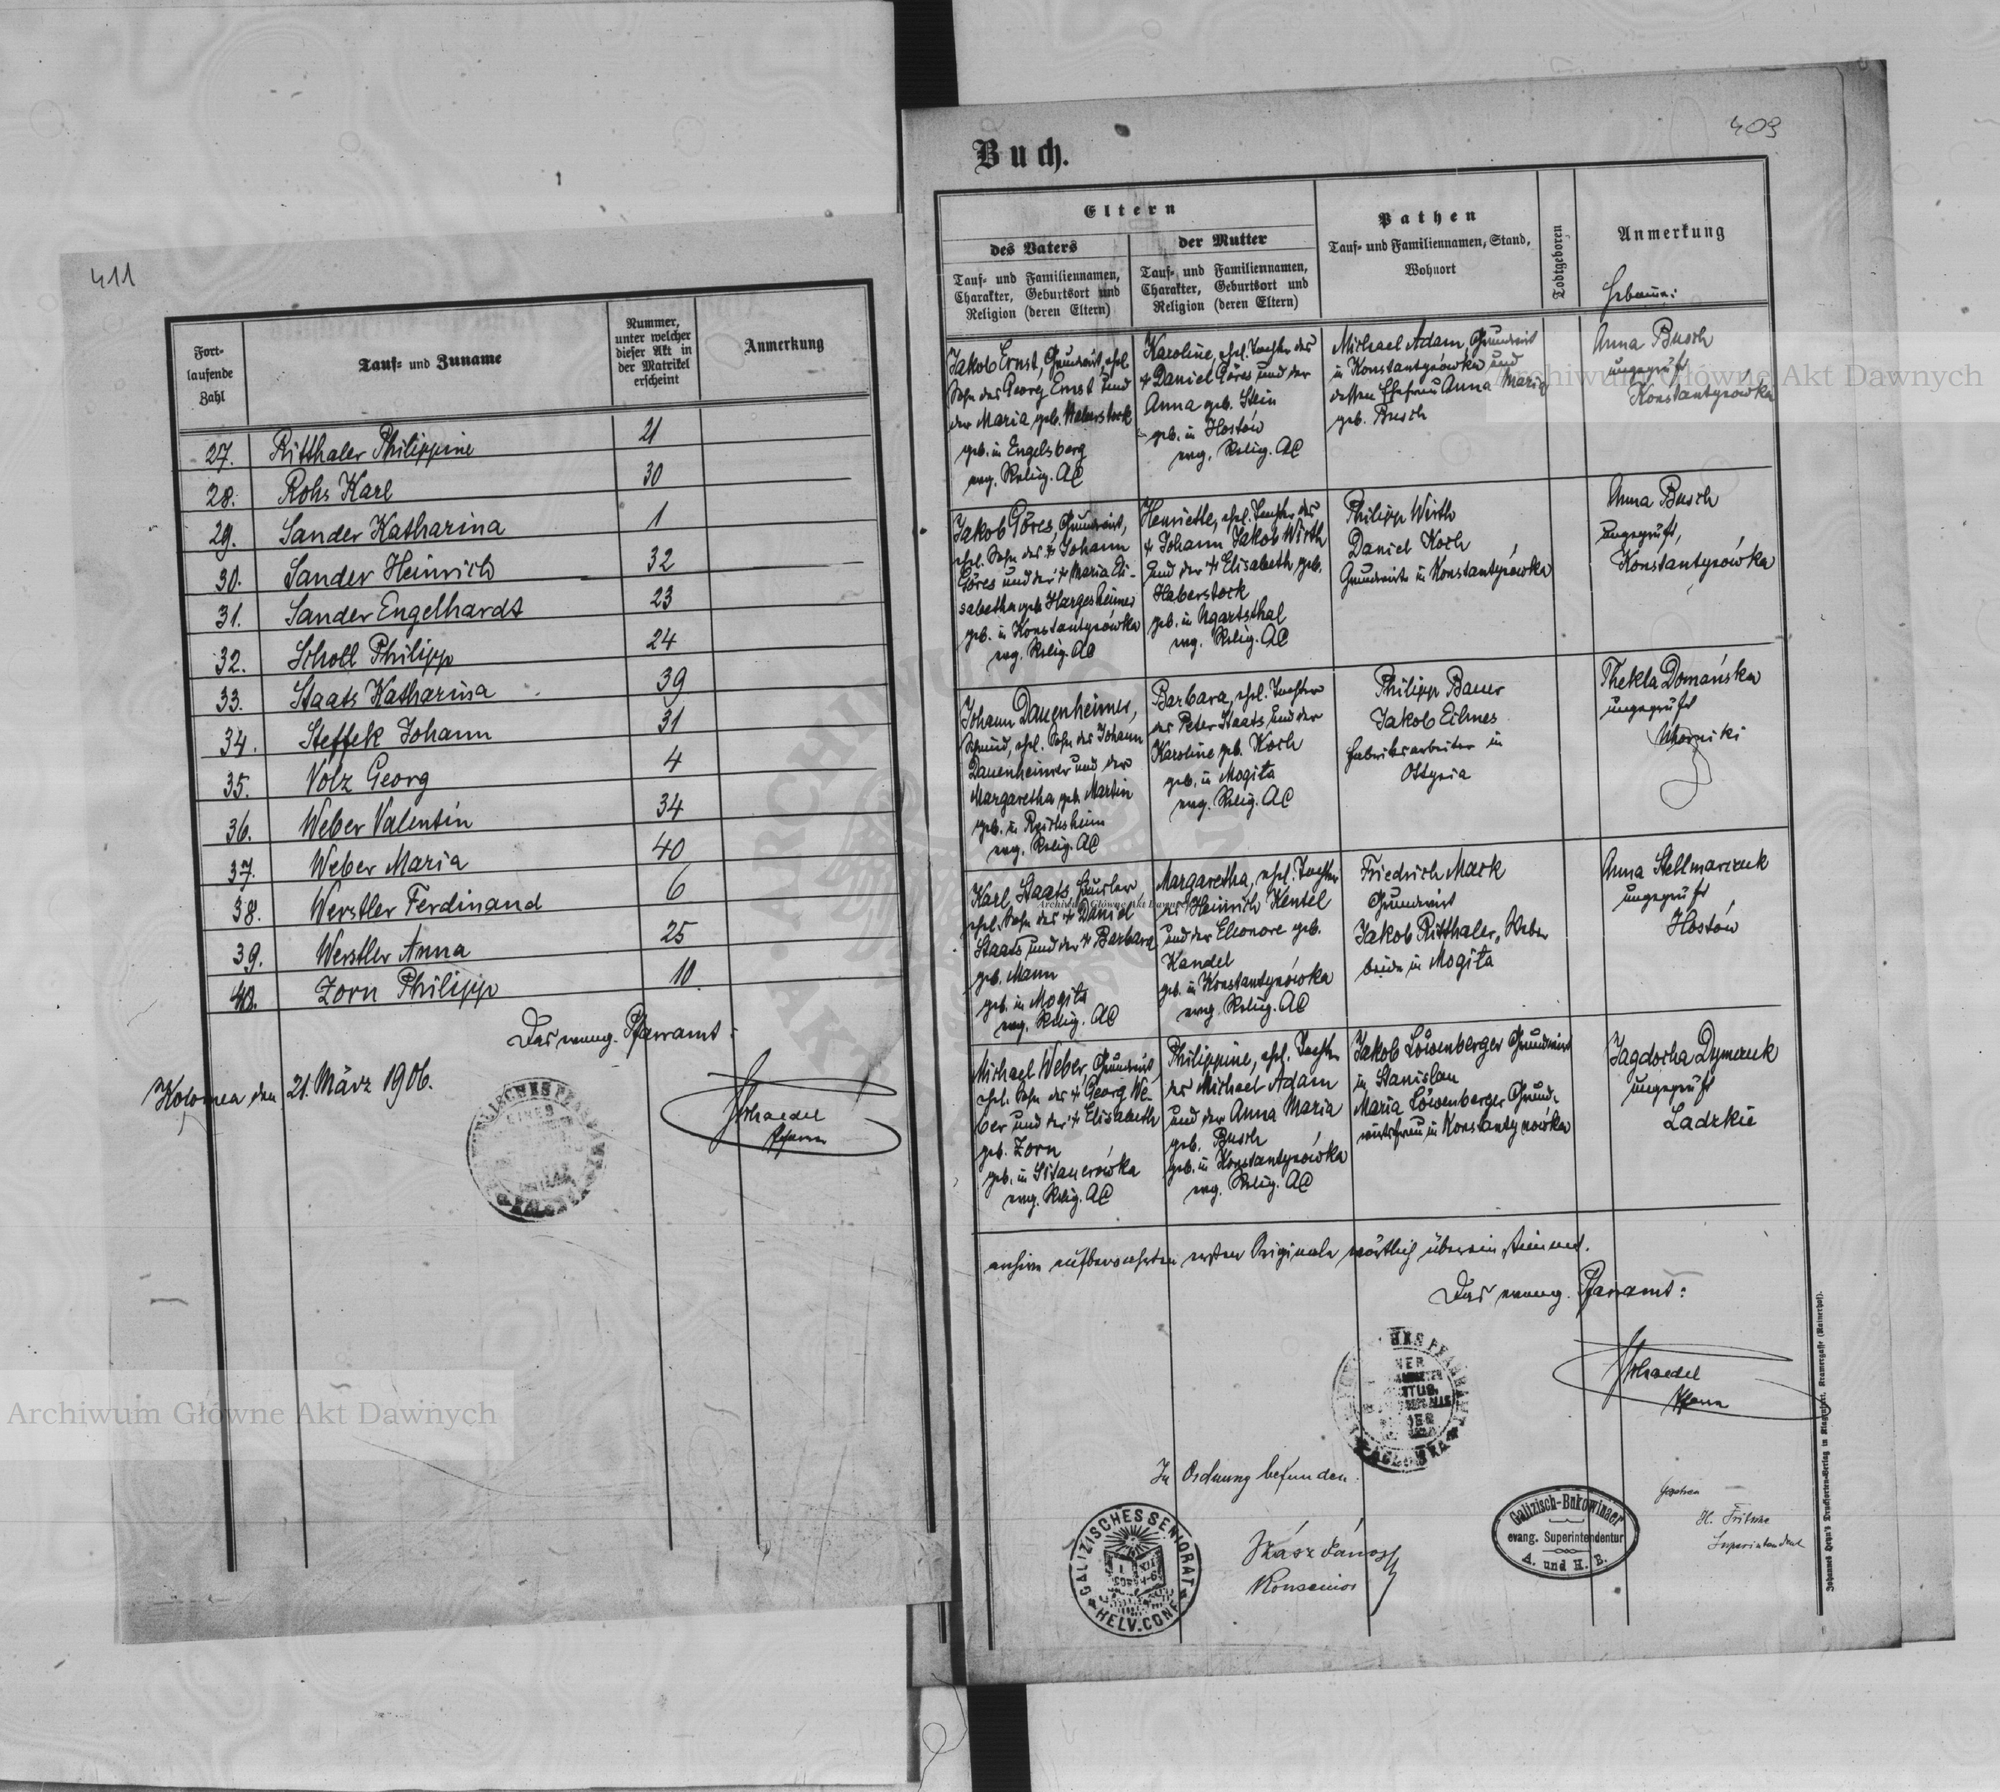 411
Fort-
laufende
Zahl
Tauf- und Zuname
Nummer,
unter welcher
dieser Akt in
der Matrikel
erscheint
Anmerkung
27. Ritthaler Philippine 21
28. Rohs Karl 30
29. Sander Katharina 1
30. Sander Heinrich 32
31. Sander Engelhardt 23
32. Scholl Philipp 24
33. Staats Katharina 39
34. Steffek Johann 31
35. Volz Georg 4
36. Weber Valentin 34
37. Weber Maria 40
38. Werstler Ferdinand 6
39. Werstler Anna 25
40. Zorn Philipp 10
Das evang. Pfarramt:
Kolomea den 21. März 1906.
Schaedel
Pfarrer
Archiwum Główne Akt Dawnych
409
Buch.
Eltern
des Vaters
Tauf- und Familiennamen,
Charakter, Geburtsort und
Religion (deren Eltern)
der Mutter
Tauf- und Familiennamen,
Charakter, Geburtsort und
Religion (deren Eltern)
Pathen
Tauf- und Familiennamen, Stand,
Wohnort
Todtgeboren
Anmerkung
Hebamme:
Jakob Ernst, Grundwirt, ehel.
Sohn des Georg Ernst und
der Maria geb. Haberstock
geb. in Engelsberg
evg. Relig. AC
Karoline, ehel. Tochter des
+ Daniel Göres und der
Anna geb. Stein
geb. in Hostów
evg. Relig. AC
Michael Adam, Grundwirt
in Konstantynówka und
dessen Ehefrau Anna Maria
geb. Busch
Anna Busch
ungeprüft
Konstantynówka
Jakob Göres, Grundwirt,
ehel. Sohn des + Johann
Göres und der + Maria Eli-
sabetha geb. Hargesheimer
geb. in Konstantynówka
evg. Relig. AC
Henriette, ehel. Tochter des
+ Johann Jakob Wirth
und der + Elisabeth geb.
Haberstock
geb. in Ugartsthal
evg. Relig. AC
Philipp Wirth
Daniel Koch
Grundwirte in Konstantynówka
Anna Busch
ungeprüft,
Konstantynówka
Johann Dauenheimer,
Schmied, ehel. Sohn des Johann
Dauenheimer und der
Margaretha geb. Martin
geb. in Reichsheim
evg. Relig. AC
Barbara, ehel. Tochter
des Peter Staats und der
Karoline geb. Koch
geb. in Mogiła
evg. Relig. AC
Philipp Bauer
Jakob Eilmes
Fabriksarbeiter in
Ottynia
Thekla Domańska
ungeprüft
Uhorniki
Karl Staats Häusler
ehel. Sohn des + Daniel
Staats und der + Barbara
geb. Mann
geb. in Mogiła
evg. Relig. AC
Margaretha, ehel. Tochter
des Heinrich Kentel
und der Eleonore geb.
Kandel
geb. in Konstantynówka
evg. Relig. AC
Friedrich Mack
Grundwirt
Jakob Ritthaler, Weber
beide in Mogiła
Anna Stellmarczuk
ungeprüft
Hostów
Michael Weber, Grundwirt,
ehel. Sohn des + Georg We-
ber und der + Elisabeth
geb. Zorn
geb. in Sitauerówka
evg. Relig. AC
Philippine, ehel. Tochter
des Michael Adam
und der Anna Maria
geb. Busch
geb. in Konstantynówka
evg. Relig. AC
Jakob Löwenberger Grundwirt
in Stanislau
Maria Löwenberger Grund-
wirtsfrau in Konstantynówka
Jagdocha Dymczuk
ungeprüft
Ladzkie
archive aufbewahrten ersten Originale wörtlich übereinstimmt.
Das evang. Pfarramt:
Schaedel
Pfarrer
In Ordnung befunden.
Szász János
Konsenior
GALIZISCHES SENIORAT
HELV. CONF.
Galizisch-Bukowinaer
evang. Superintendentur
A. und H. B.
Gesehen
H. Fritsche
Superintendent
Archiwum Główne Akt Dawnych